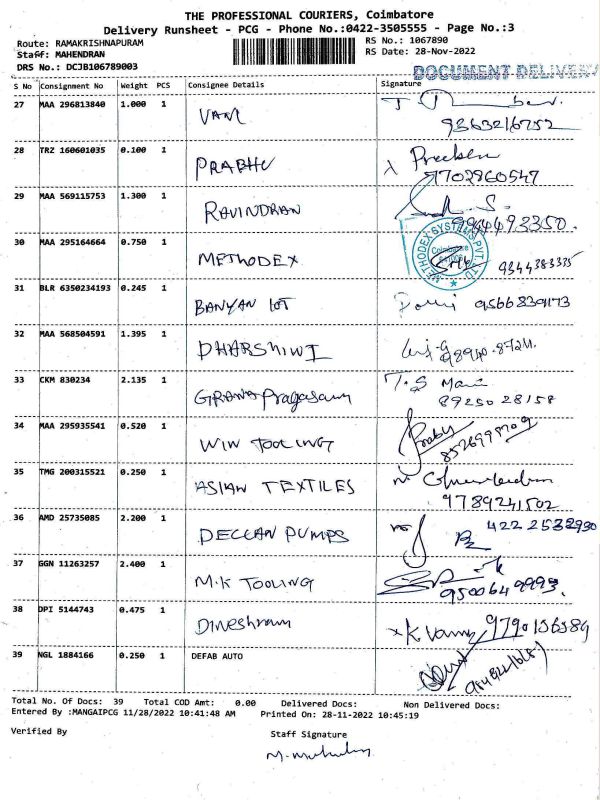 THE PROFESSIONAL COURIERS, Coimbatore
Delivery Runsheet - PCG - Phone No.:0422-3505555 - Page No.:3
Route: RAMAKRISHNAPURAM RS No.: 1067890
Staff: MAHENDRAN RS Date: 28-Nov-2022
DRS No.: DCJB106789003 DOCUMENT DELIVERY
S No Consignment No Weight PCS Consignee Details Signature
27 MAA 296813840 1.000 1 VAM
9363216752
28 TRZ 160601035 0.100 1 PRABHU
7702860547
29 MAA 569115753 1.300 1 RAVINDRAN
9944493350.
30 MAA 295164664 0.750 1 METHODEX METHODEX SYSTEMS PVT. LTD Coimbatore
9344383335
31 BLR 6350234193 0.245 1 BANYAN IOT 9566839173
32 MAA 568504591 1.395 1 DHARSHINI
98940.87211.
33 CKM 830234 2.135 1 GRAND Pragasam T.S Mani
89250 28158
34 MAA 295935541 0.520 1 WIN TOOLING Prabu
35 TMG 200315521 0.250 1 ASIAN TEXTILES
9789241502
36 AMD 25735085 2.200 1 DECCAN PUMPS 422 2532930
37 GGN 11263257 2.400 1 M.K TOOLING
9500649993.
38 DPI 5144743 0.475 1 Dineshram 9790156589
39 NGL 1884166 0.250 1 DEFAB AUTO
Total No. Of Docs: 39 Total COD Amt: 0.00 Delivered Docs: Non Delivered Docs:
Entered By :MANGAIPCG 11/28/2022 10:41:48 AM Printed On: 28-11-2022 10:45:19
Verified By Staff Signature